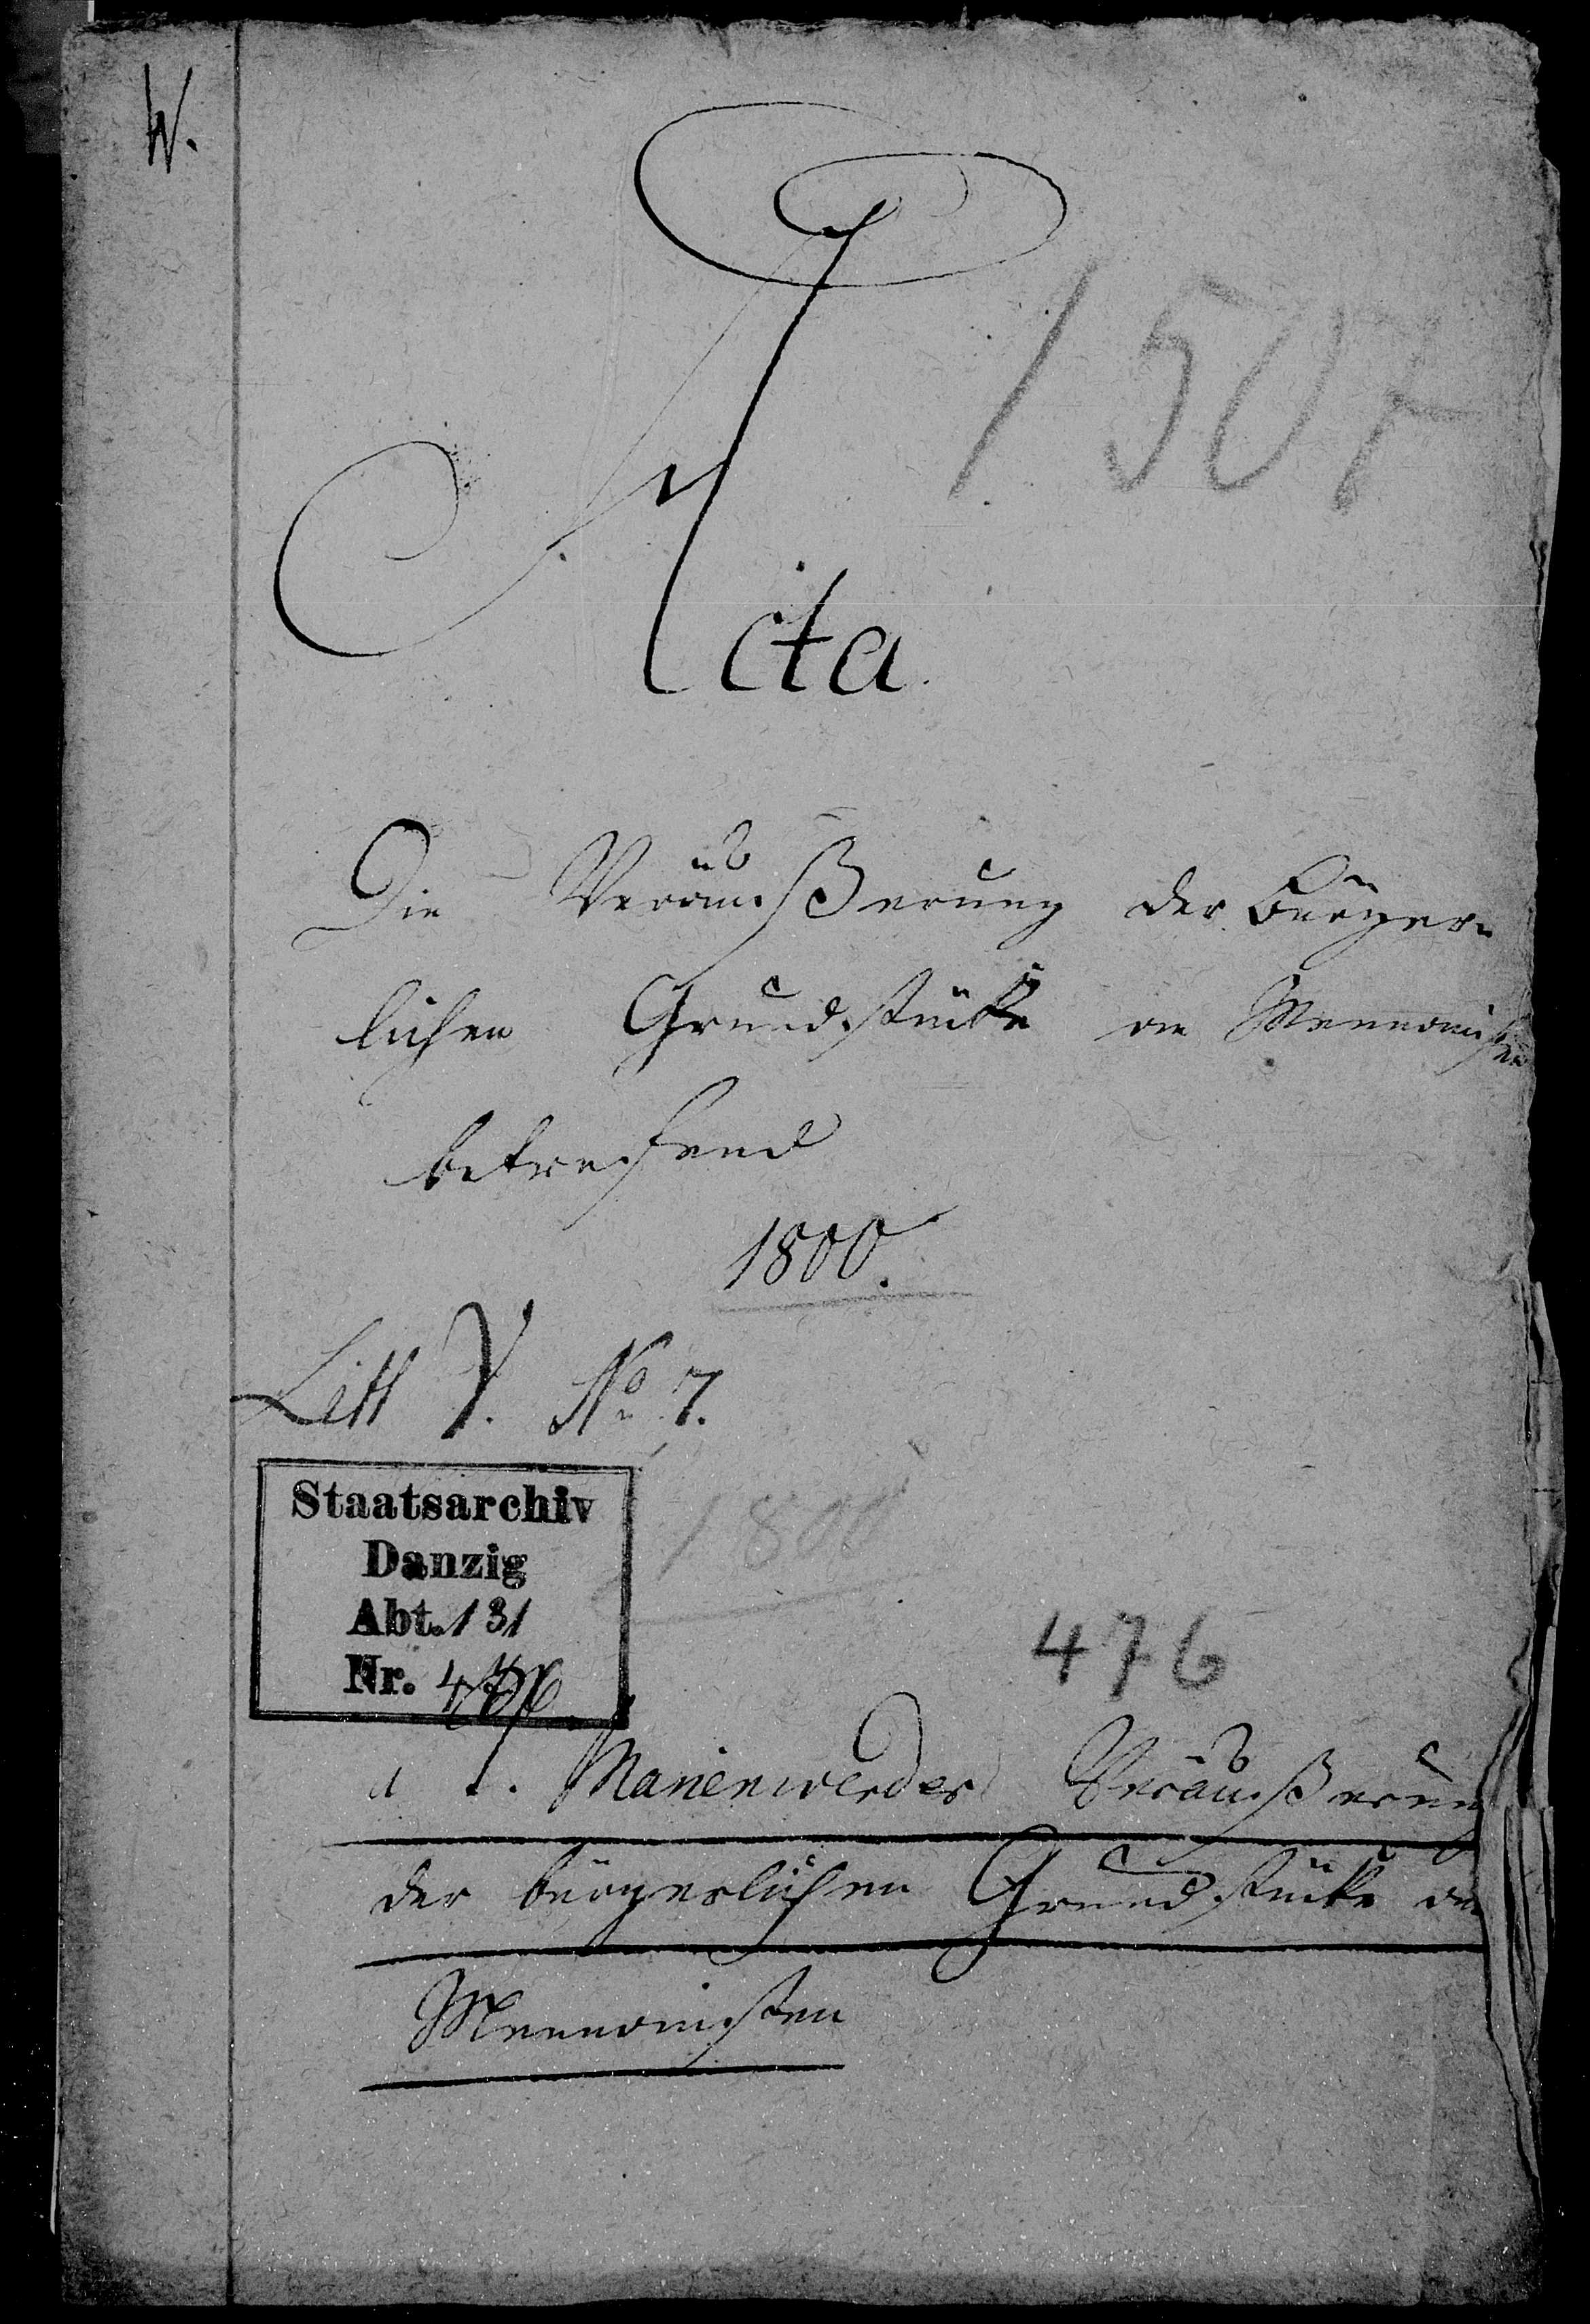 W.
1507
Acta
Die Veräußerung der Bürger-
lichen Grundstücke an Mennonisten
betrefend
1800.
Litt V. No 7.
Staatsarchiv
Danzig
Abt. 131
Nr.
1800
476
Marienwerder Veräußerung
der bürgerlichen Grundstücke an
Mennonisten